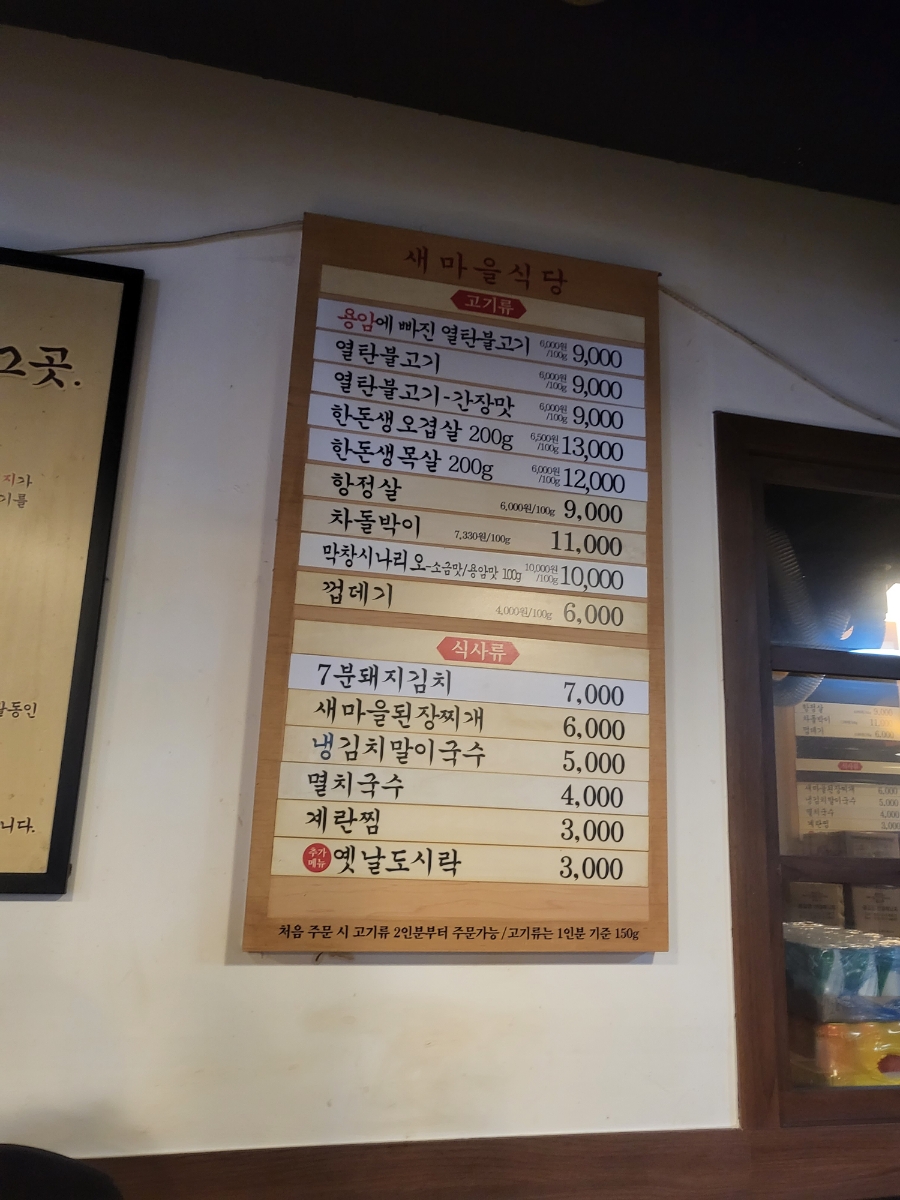 그곳.
지가
기를
할동인
니다.
새마을식당
고기류
용암에 빠진 열탄불고기 6,000원/100g 9,000
열탄불고기 6,000원/100g 9,000
열탄불고기-간장맛 6,000원/100g 9,000
한돈생오겹살 200g 6,500원/100g 13,000
한돈생목살 200g 6,000원/100g 12,000
항정살 6,000원/100g 9,000
차돌박이 7,330원/100g 11,000
막창시나리오-소금맛/용암맛 100g 10,000원/100g 10,000
껍데기 4,000원/100g 6,000
식사류
7분돼지김치 7,000
새마을된장찌개 6,000
냉김치말이국수 5,000
멸치국수 4,000
계란찜 3,000
추가메뉴 옛날도시락 3,000
처음 주문 시 고기류 2인분부터 주문가능/고기류는 1인분 기준 150g
항정살 9,000
차돌박이 11,000
껍데기 6,000
새마을된장찌개 6,000
냉김치말이국수 5,000
멸치국수 4,000
계란찜 3,000